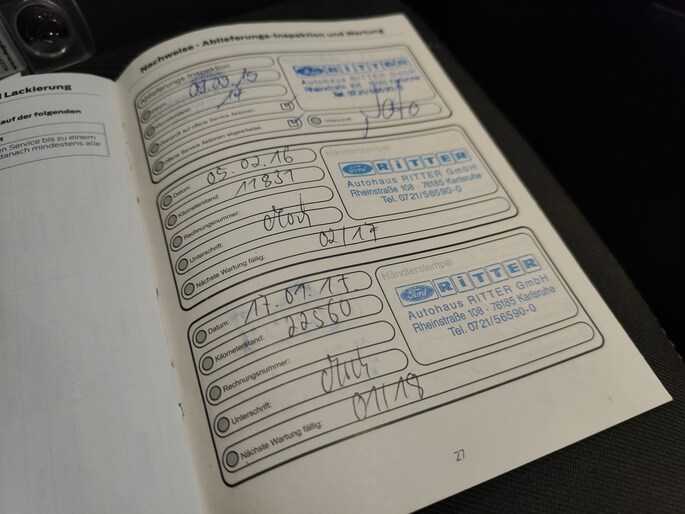 Lackierung
auf der folgenden
en Service bis zu einem
danach mindestens alle
Nachweise - Ablieferungs-Inspektion und Wartung
Ablieferungs-Inspektion
17
offene Service Aktionen
offene Service Aktionen abgearbeitet
Unterschrift
RITTER
Autohaus RITTER GmbH
Rheinstraße 108 · 76185 Karlsruhe
Tel. 0721/56590-0
Datum: 05.02.16
Kilometerstand: 11831
Rechnungsnummer:
Unterschrift:
Nächste Wartung fällig: 02/17
Händlerstempel
Ford RITTER
Autohaus RITTER GmbH
Rheinstraße 108 · 76185 Karlsruhe
Tel. 0721/56590-0
Datum: 17.01.17
Kilometerstand: 22560
Rechnungsnummer:
Unterschrift:
Nächste Wartung fällig: 01/18
Händlerstempel
Ford RITTER
Autohaus RITTER GmbH
Rheinstraße 108 · 76185 Karlsruhe
Tel. 0721/56590-0
27